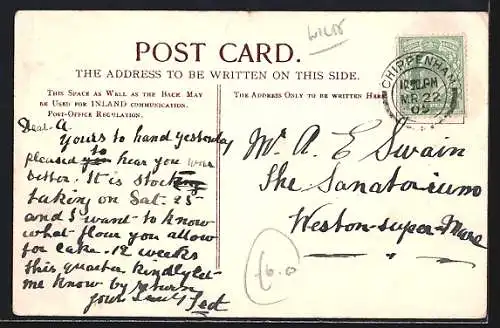 Wilts
POST CARD.
THE ADDRESS TO BE WRITTEN ON THIS SIDE.
THIS SPACE AS WELL AS THE BACK MAY
BE USED FOR INLAND COMMUNICATION.
POST-OFFICE REGULATION.
THE ADDRESS ONLY TO BE WRITTEN HERE
CHIPPENHAM
MR 22
05
Dear A.
Yours to hand yesterday
pleased to hear you were
better. It is stock
taking on Sat. 25
and I want to know
what flour you allow
for cake. 12 weeks
this quarter kindly let
me know by return
Your Fred
Mr A. E Swain
The Sanatorium
Weston-super-Mare
£6.0